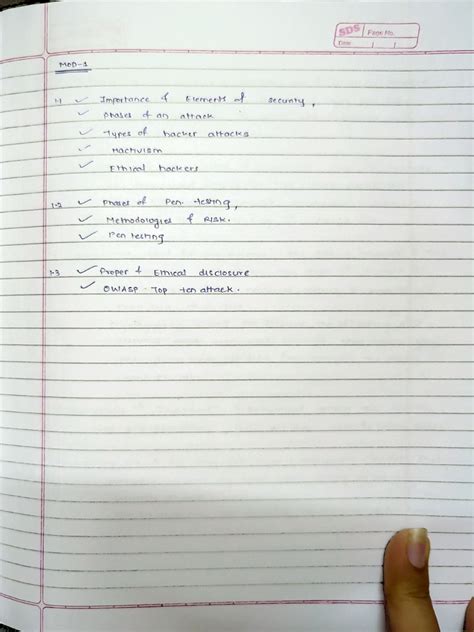 SDS Page No.
Date
MOD-1
1.1 ✓ Importance & Elements of security,
✓ Phases of an attack
✓ Types of hacker attacks
✓ Hactivism
✓ Ethical hackers
1.2 ✓ Phases of Pen. testing,
✓ Methodologies & RISK.
✓ Pen testing
1.3 ✓ Proper & Ethical disclosure
✓ OWASP Top ten attack.